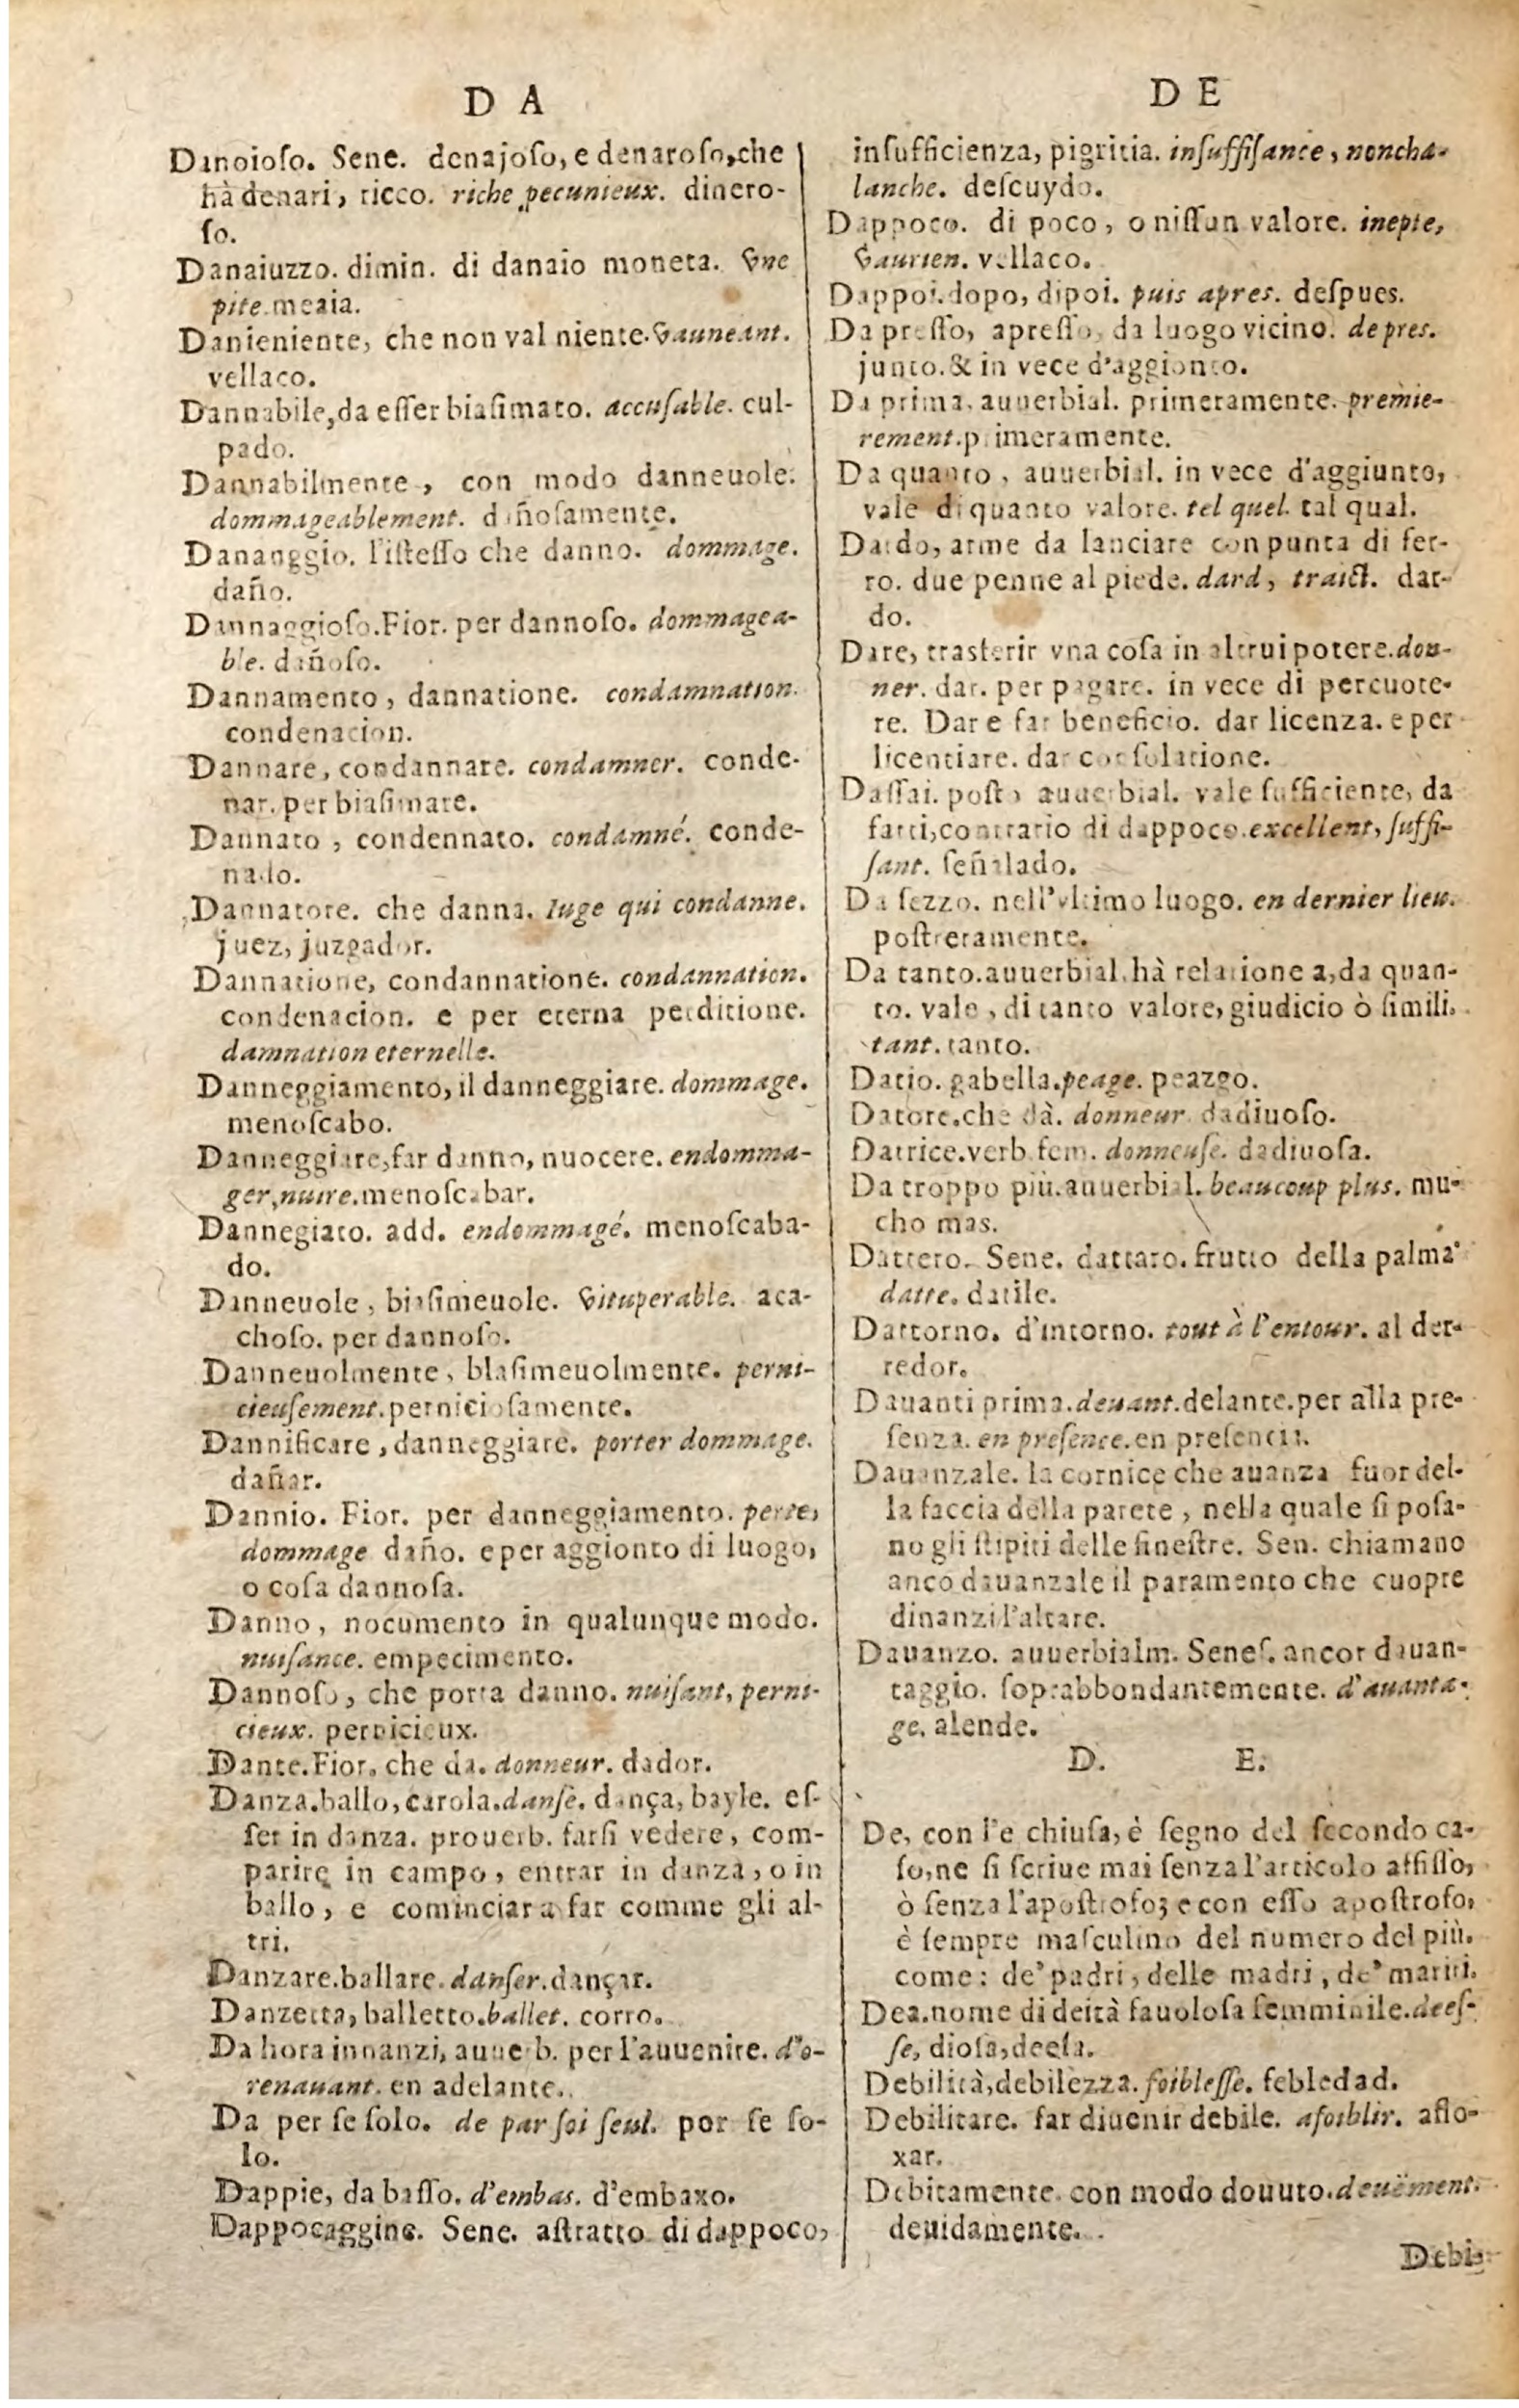 D A
Danoioſo. Sene. denajoſo, e denaroſo, che
hà denari, ricco. riche pecunieux. dinero-
ſo.
Danaiuzzo. dimin. di danaio moneta. Vne
pite. meaia.
Danieniente, che non val niente. Vauneant.
vellaco.
Dannabile, da eſſer biaſimato. accuſable. cul-
pado.
Dannabilmente, con modo danneuole.
dommageablement. dañoſamente.
Dananggio. l'iſteſſo che danno. dommage.
daño.
Dannaggioſo. Fior. per dannoſo. dommagea-
ble. dañoſo.
Dannamento, dannatione. condamnation.
condenacion.
Dannare, condannare. condamner. conde-
nar. per biaſimare.
Dannato, condennato. condamné. conde-
nado.
Dannatore. che danna. Iuge qui condanne.
juez, juzgador.
Dannatione, condannatione. condannation.
condenacion. e per eterna perditione.
damnation eternelle.
Danneggiamento, il danneggiare. dommage.
menoſcabo.
Danneggiare, far danno, nuocere. endomma-
ger, nuire. menoſcabar.
Dannegiato. add. endommagé. menoſcaba-
do.
Danneuole, biaſimeuole. Vituperable. aca-
choſo. per dannoſo.
Danneuolmente, blaſimeuolmente. perni-
cieuſement. pernicioſamente.
Dannificare, danneggiare. porter dommage.
dañar.
Dannio. Fior. per danneggiamento. perte,
dommage daño. e per aggionto di luogo,
o coſa dannoſa.
Danno, nocumento in qualunque modo.
nuiſance. empecimento.
Dannoſo, che porta danno. nuiſant, perni-
cieux. pernicieux.
Dante. Fior. che da. donneur. dador.
Danza. ballo, carola. danſe. dança, bayle. eſ-
ſer in danza. prouerb. farſi vedere, com-
parire in campo, entrar in danza, o in
ballo, e cominciar a far comme gli al-
tri.
Danzare. ballare. danſer. dançar.
Danzetta, balletto. ballet. corro.
Da hora innanzi, auuerb. per l'auuenire. d'o-
renauant. en adelante.
Da per ſe ſolo. de par ſoi ſeul. por ſe ſo-
lo.
Dappie, da baſſo. d'embas. d'embaxo.
Dappocaggine. Sene. aſtratto di dappoco,
D E
inſufficienza, pigritia. inſuffiſance, noncha-
lanche. deſcuydo.
Dappoco. di poco, o niſſun valore. inepte,
Vaurien. vellaco.
Dappoi. dopo, dipoi. puis apres. deſpues.
Da preſſo, apreſſo, da luogo vicino. de pres.
junto. & in vece d'aggionto.
Da prima. auuerbial. primeramente. premie-
rement. primeramente.
Da quanto, auuerbial. in vece d'aggiunto,
vale di quanto valore. tel quel. tal qual.
Dardo, arme da lanciare con punta di fer-
ro. due penne al piede. dard, traict. dar-
do.
Dare, trasferir vna coſa in altrui potere. don-
ner. dar. per pagare. in vece di percuote-
re. Dar e far beneficio. dar licenza. e per
licentiare. dar conſolatione.
Daſſai. poſto auuerbial. vale ſufficiente, da
fatti, contrario di dappoco. excellent, ſuffi-
ſant. ſeñalado.
Da ſezzo. nell'vltimo luogo. en dernier lieu.
poſtreramente.
Da tanto. auuerbial. hà relatione a, da quan-
to. vale, di tanto valore, giudicio ò ſimili.
tant. tanto.
Datio. gabella. peage. peazgo.
Datore. che dà. donneur. dadiuoſo.
Datrice. verb. fem. donneuſe. dadiuoſa.
Da troppo più. auuerbial. beaucoup plus. mu-
cho mas.
Dattero. Sene. dattaro. frutto della palma
datte. datile.
Dattorno. d'intorno. tout à l'entour. al der-
redor.
Dauanti prima. deuant. delante. per alla pre-
ſenza. en preſence. en preſencia.
Dauanzale. la cornice che auanza fuor del-
la faccia della parete, nella quale ſi poſa-
no gli ſtipiti delle fineſtre. Sen. chiamano
anco dauanzale il paramento che cuopre
dinanzi l'altare.
Dauanzo. auuerbialm. Seneſ. ancor dauan-
taggio. ſoprabbondantemente. d'auanta-
ge. alende.
D. E.
De, con l'e chiuſa, è ſegno del ſecondo ca-
ſo, ne ſi ſcriue mai ſenza l'articolo affiſſo,
ò ſenza l'apoſtrofo; e con eſſo apoſtrofo,
è ſempre maſculino del numero del più.
come: de' padri, delle madri, de' mariti.
Dea. nome di deità fauoloſa femminile. deeſ-
ſe, dioſa, deeſa.
Debilità, debilezza. foibleſſe. febledad.
Debilitare. far diuenir debile. afoiblir. aflo-
xar.
Debitamente. con modo douuto. deuëment.
deuidamente.
Debi-